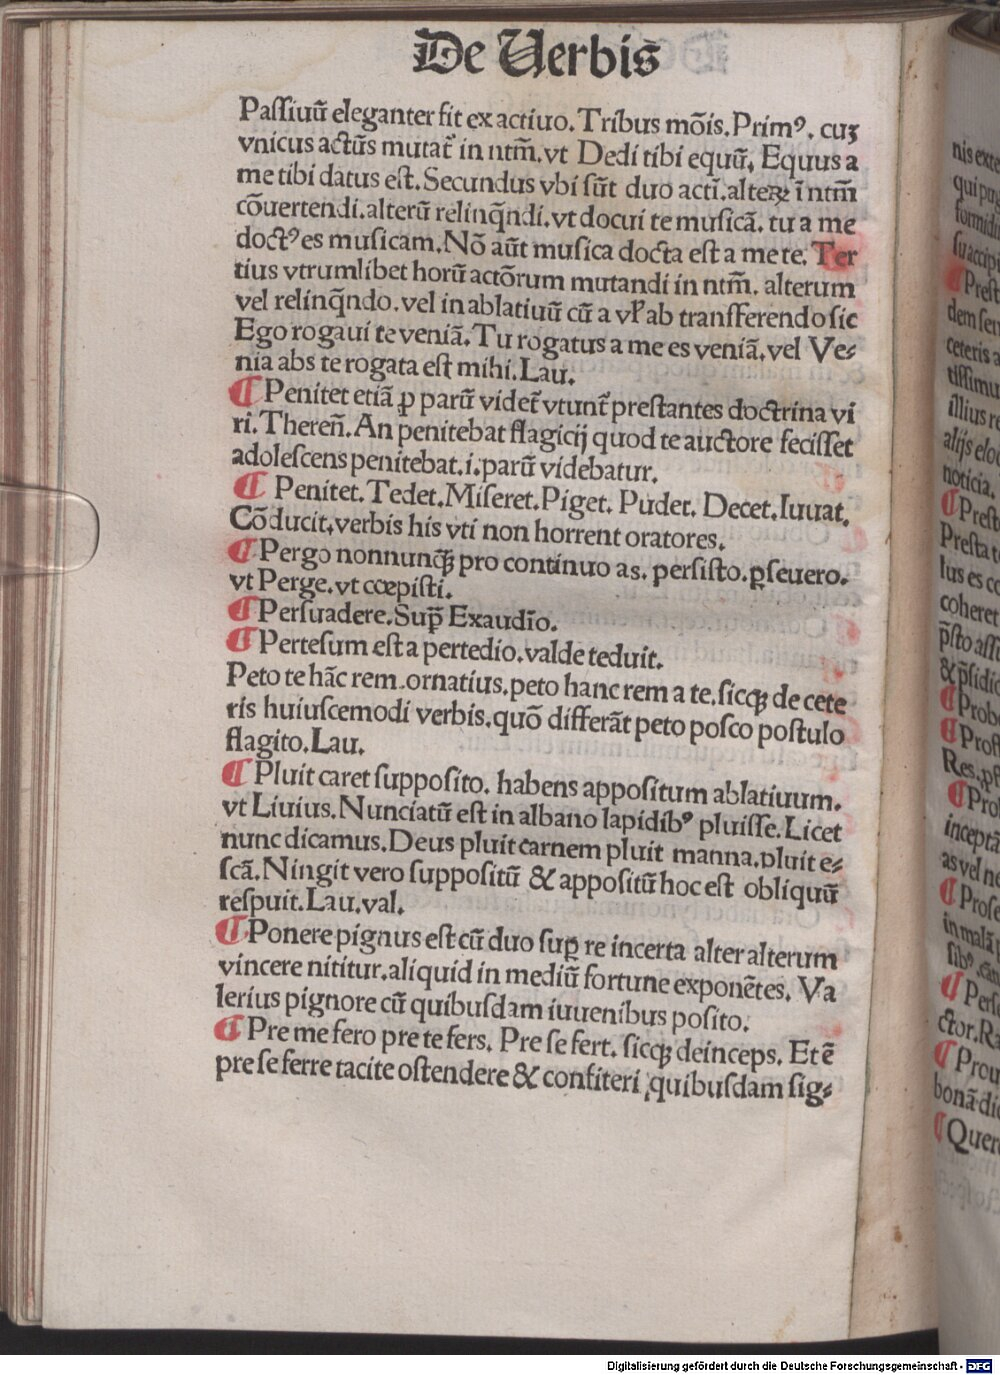 De Uerbis
Passiuū eleganter fit ex actiuo. Tribus mōis. Primꝰ. cuꝫ
vnicus actūs mutat̄ in ntm̄. vt Dedi tibi equū. Equus a
me tibi datus est. Secundus vbi sūt duo acti. alteꝝ ī ntm̄
cōuertendi. alterū relinq̄ndi. vt docui te musicā. tu a me
doctꝰ es musicam. Nō aūt musica docta est a me te. Ter
tius vtrumlibet horū actōrum mutandi in ntm̄. alterum
vel relinq̄ndo. vel in ablatiuū cū a vl̓ ab transferendo sic
Ego rogaui te veniā. Tu rogatus a me es veniā. vel Ve⸗
nia abs te rogata est mihi. Lau.
¶ Penitet etiā ꝓ parū videt̄ vtunt̄ prestantes doctrina vi
ri. Thereñ. An penitebat flagicij quod te auctore fecisset
adolescens penitebat. i. parū videbatur.
¶ Penitet. Tedet. Miseret. Piget. Pudet. Decet. Iuuat.
Cōducit. verbis his vti non horrent oratores.
¶ Pergo nonnunq̄ꝫ pro continuo as. persisto. ꝑseuero.
vt Perge. vt cœpisti.
¶ Persuadere. Sup̄ Exaudīo.
¶ Pertesum est a pertedio. valde teduit.
Peto te hāc rem. ornatius. peto hanc rem a te. sicqꝫ de cete
ris huiuscemodi verbis. quō differāt peto posco postulo
flagito. Lau.
¶ Pluit caret supposito. habens appositum ablatiuum.
vt Liuius. Nunciatū est in albano lapidibꝰ pluisse. Licet
nunc dicamus. Deus pluit carnem pluit manna. pluit e⸗
scā. Ningit vero suppositū & appositū hoc est obliquū
respuit. Lau. val.
¶ Ponere pignus est cū duo suꝑ re incerta alter alterum
vincere nititur. aliquid in mediū fortune exponētes. Va
lerius pignore cū quibusdam iuuenibus posito.
¶ Pre me fero pre te fers. Pre se fert. sicqꝫ deinceps. Et ē
pre se ferre tacite ostendere & confiteri quibusdam sig⸗
nis exte
qui pug
formidi
su accipi
¶ Prest
dem ser
ceteris a
tissimu
illius re
alijs elo
noticia.
¶ Prest
Presta t
Ius es co
coheret
p̄sto assu
& p̄sidi
¶ Prob
¶ Prof
Res. ꝓf
¶ Pro
incepta
as vel ne
¶ Profe
in malā
sibꝰ.
¶ Pers
ctor. Ra
¶ Prou
bonā di
¶ Quer
Digitalisierung gefördert durch die Deutsche Forschungsgemeinschaft - DFG